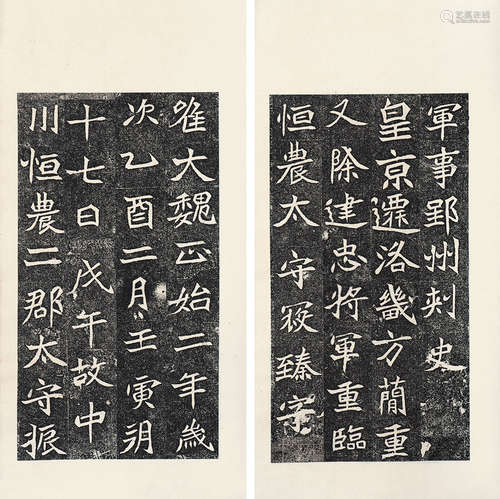 唯大魏正始二年歲
次乙酉二月壬寅朔
十七日戊午故中
川恒農二郡太守振
軍事郢州刺史
皇京遷洛畿方簡重
又除建忠將軍重臨
恒農太守寇臻字
艺狐在线